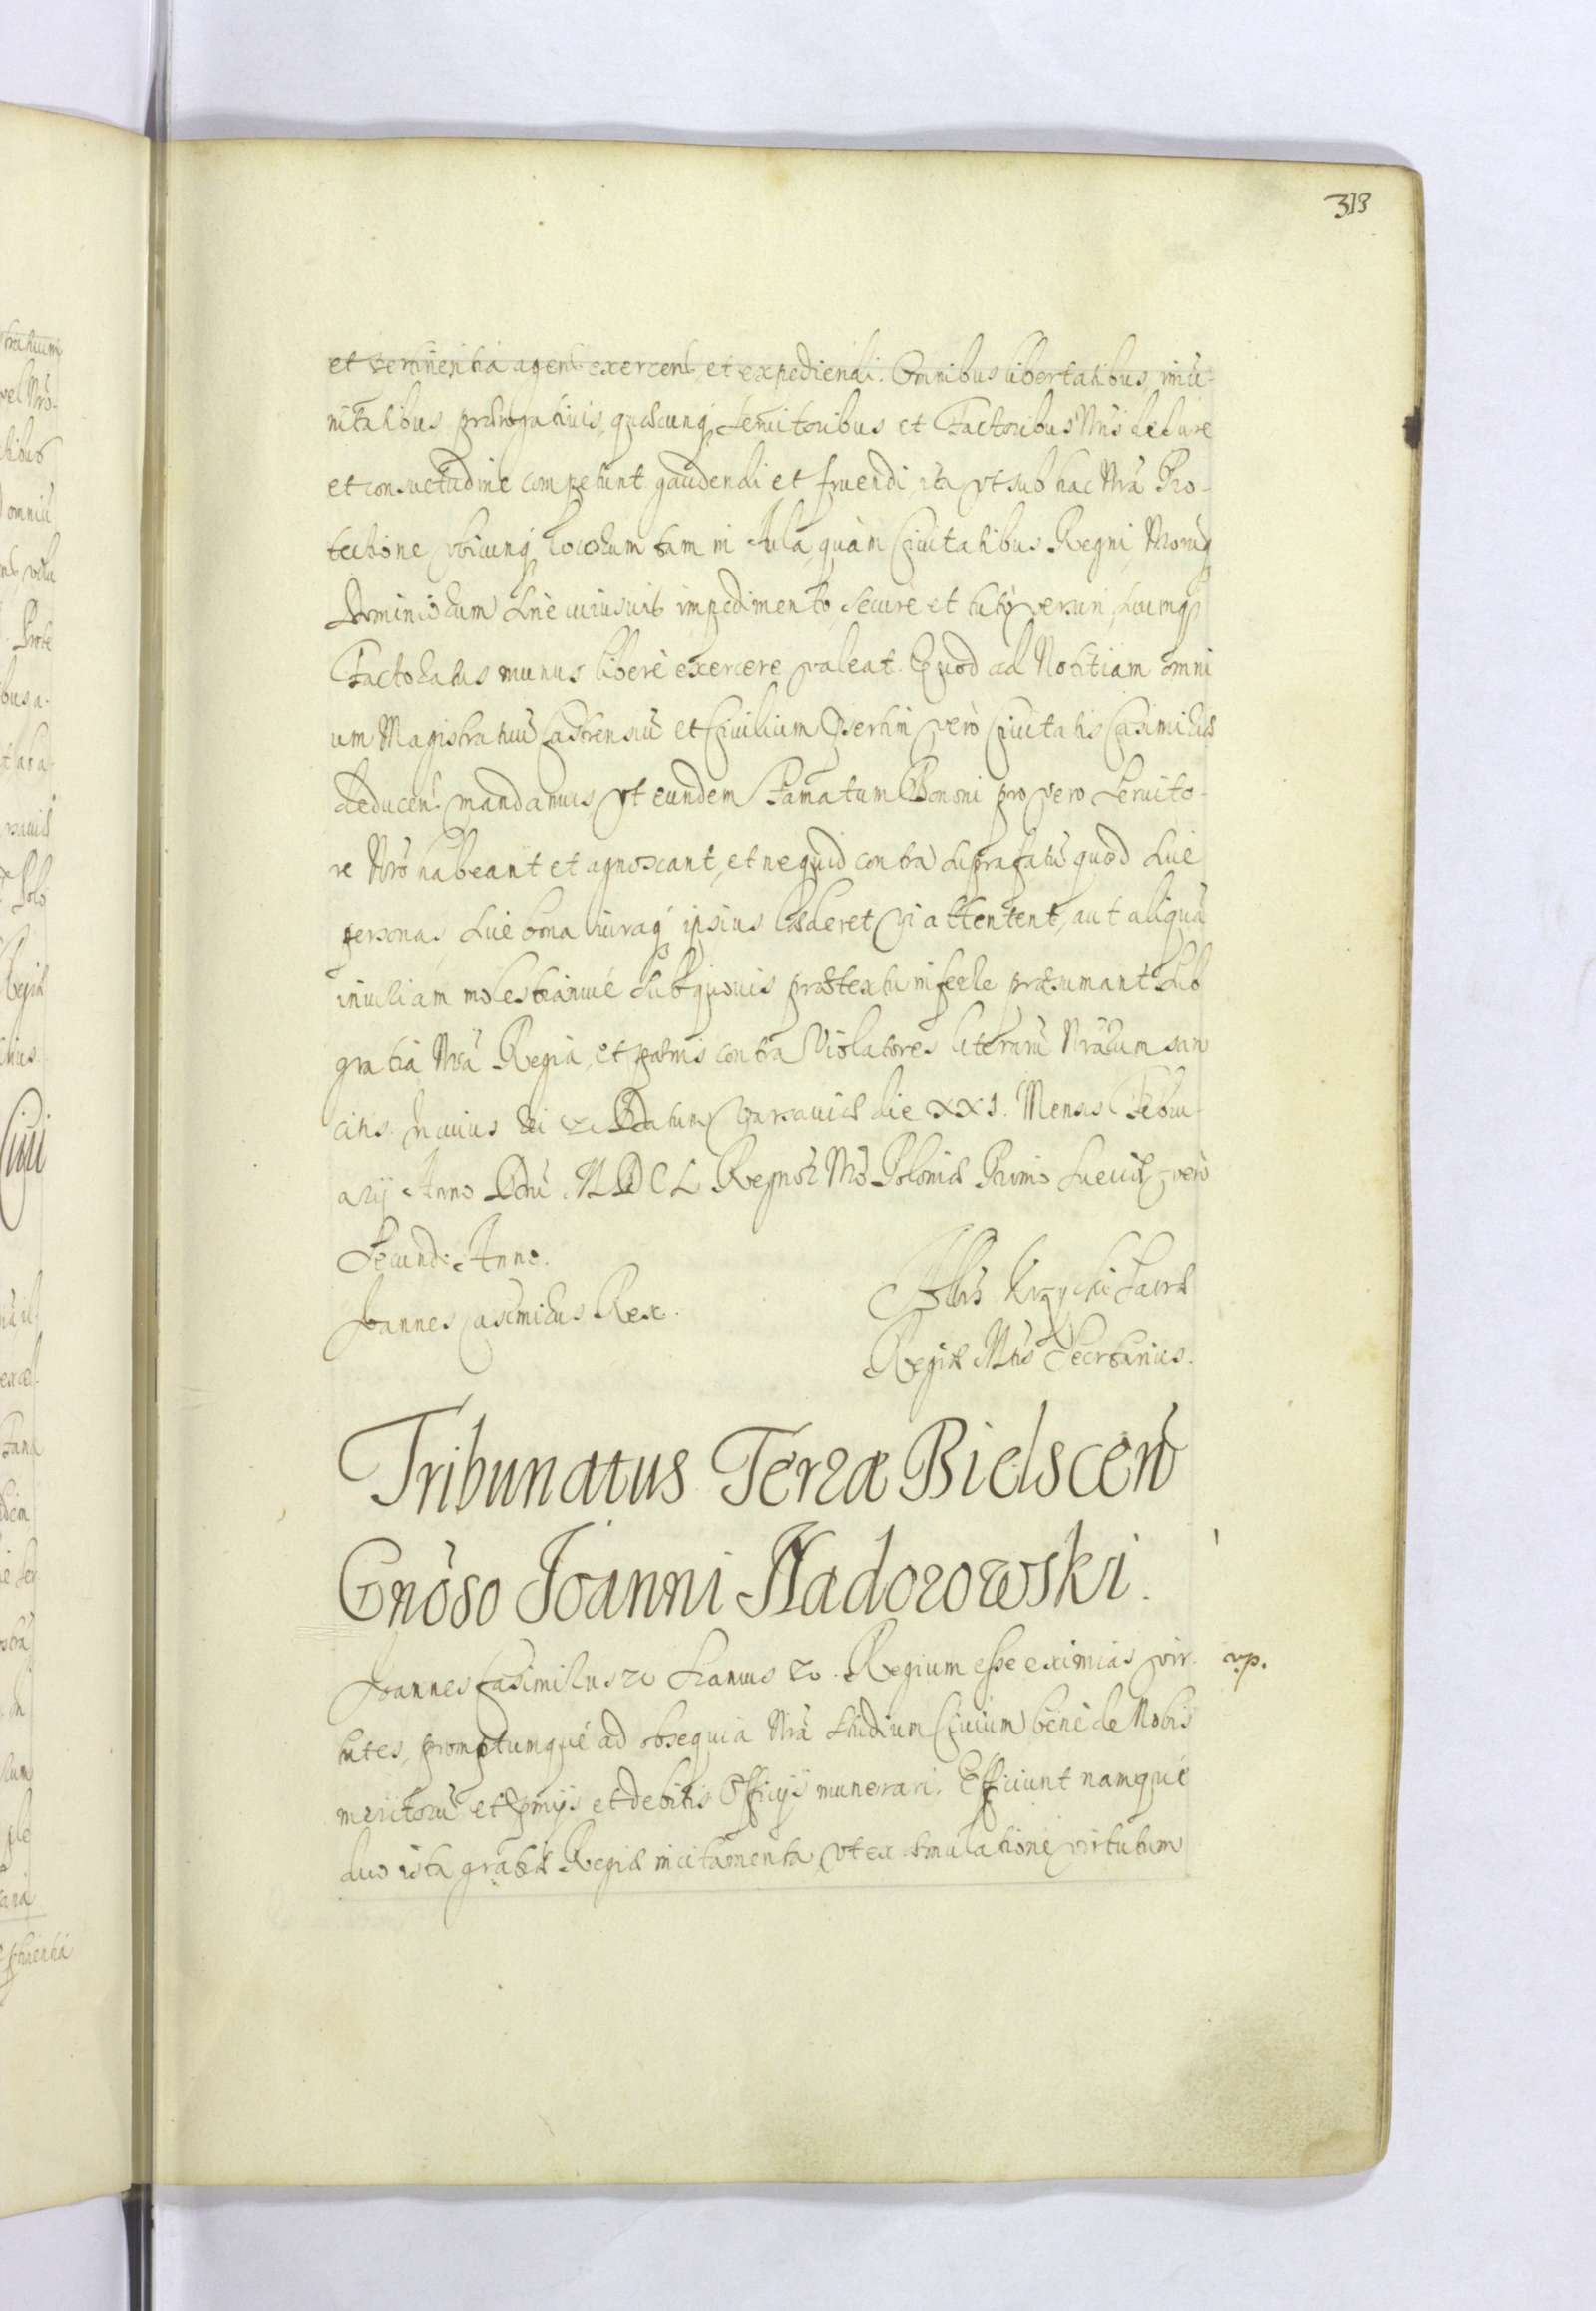 313
et pertinentia agend exercend et expediendi. Omnibus libertatibus, imũ-
nitatibus prærogativis, quæcunq Servitoribus et Factoribus Nris de Jure
et consuetudine competunt gaudendi et fruendi, ita ut sub hac Nrã Pro-
tectione, ubicunq locorum tam in Aula, quàm Civitatibus Regni, Nrorũq
Dominiorum sine cuiusvis impedimento, secure et tuto versari, suumq
Factoratus munus liberè exercere valeat. Quod ad Notitiam omni
um Magistratuũ Castrensiũ et Civilium Psertim verò Civitatis Casimiriæ
deducen mandamus, ut eundem Famatum Bononi pro vero Servito-
re Nrõ habeant et agnoscant, et nequid contra supra fatũ quod sive
personas, sive bona iuraq ipsius læderet vi attentent, aut aliquã
iniuriam molestiamvé sub quovis prætextu inferre præsumant Sub
gratia Nrã Regia, et pænis contra Violatores literarũ Nrarum san
citis. In cuius rei &c Datum Varsaviæ die XXI. Mensis Febru-
arij Anno Dni MDCL Regnor Nrõ Poloniæ Primo Sueciæ verò
Secundo Anno.
Joannes Casimirus Rex.
Albrs Krzycki Sacræ
Regiæ Mtis Secrtarius.
Tribunatus Terræ Bielscen
Gnoso Joanni Nadorowski.
Joannes Casimirus &c Sranius &c. Regium esse eximias vir-
vp.
tutes, promptumqué ad obsequia Nrã studium Civium bene de Nobis
meritorũ et Pmijs et debitis Officijs munerari. Efficiunt namqué
duo ista gratiæ Regiæ incitamenta, ut ex æmulatione virtutum